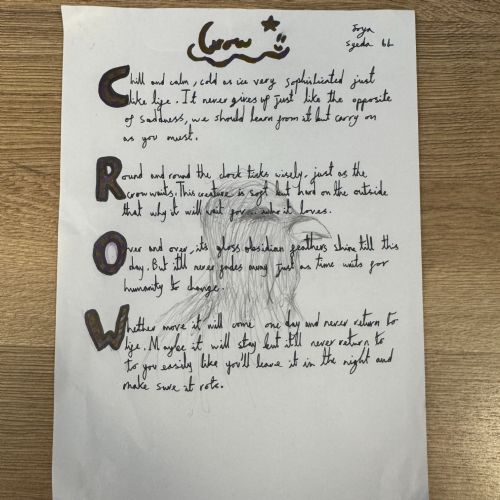 Crow
Zoya
Syeda 6L
Chill and calm, cold as ice very sophisticated just
like life. It never gives up just like the opposite
of sadness, we should learn from it but carry on
as you must.
Round and round the clock ticks wisely, just as the
crow waits. This creature is soft but hard on the outside
that why it will wait for who it loves.
Over and over, its gloss obsidian feathers shine till this
day. But itll never fades away just as time waits for
humanity to change.
Whether move it will come one day and never return to
life. Maybe it will stay but itll never return to
to you easily like you'll leave it in the night and
make sure it rots.